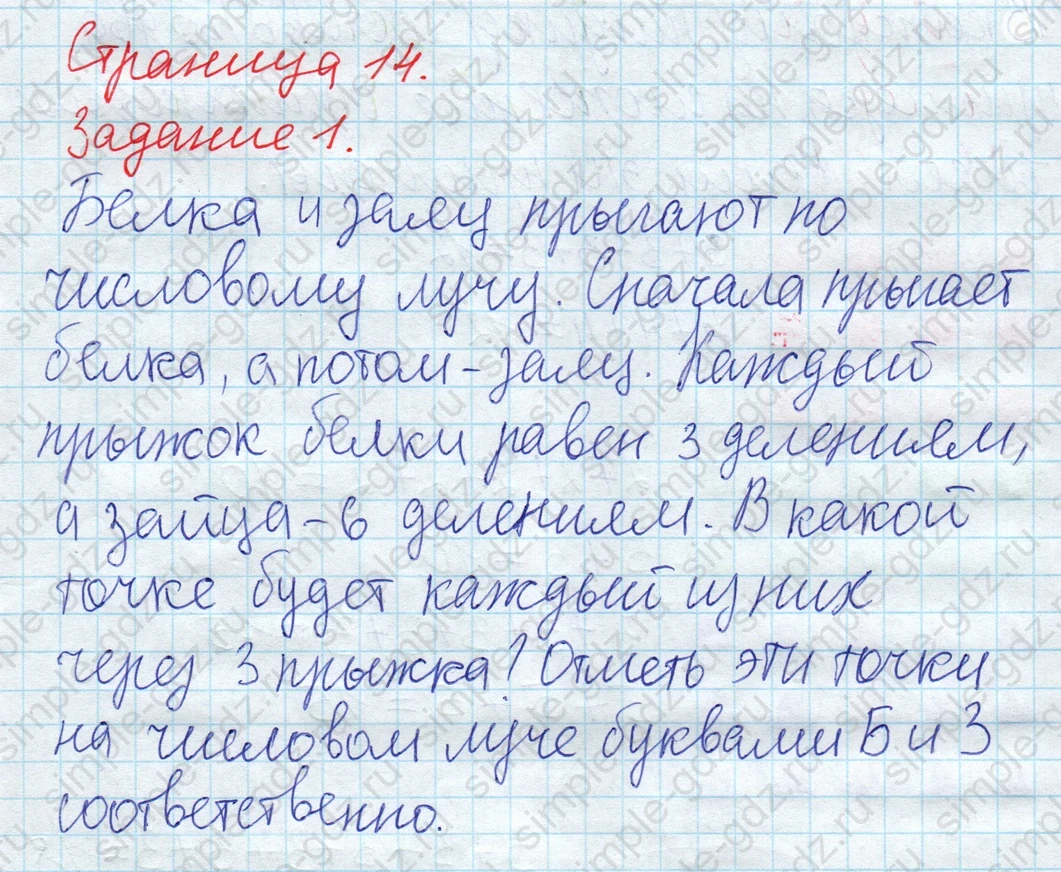 Страница 14.
Задание 1.
Белка и заяц прыгают по
числовому лучу. Сначала прыгает
белка, а потом - заяц. Каждый
прыжок белки равен 3 делениям,
а зайца - 6 делениям. В какой
точке будет каждый из них
через 3 прыжка? Отметь эти точки
на числовом луче буквами Б и З
соответственно.
simple-gdz.ru